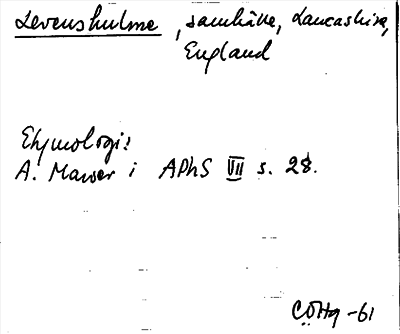 Levenshulme, samhälle, Lancashire,
England
Etymologi:
A. Mawer i APhS VII s. 28.
CÖHg -61